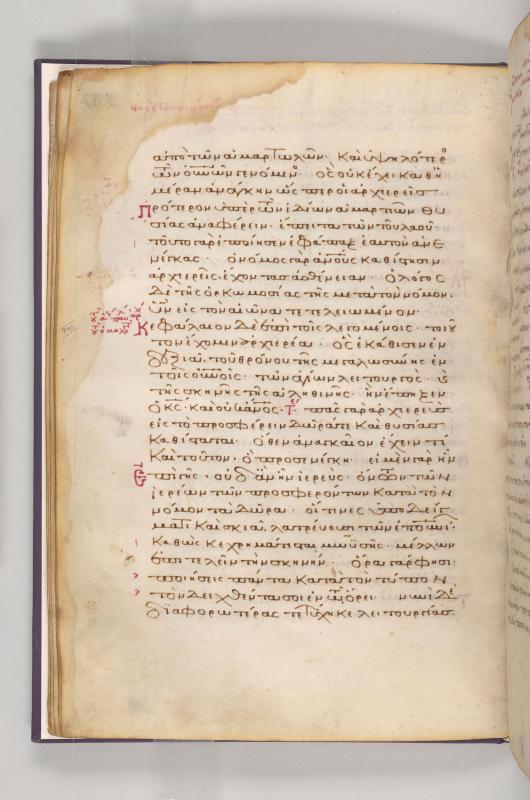 ἀπὸ τῶν ἁμαρτωλῶν· Καὶ ὑψηλότερ
τῶν οὐνῶν γενόμεν· ὃς οὐκ ἔχει καθ ἡ
μέραν ἀνάγκην ὡς περ οἱ ἀρχιερεῖς
Πρότερον ὑπὲρ τῶν ἰδίων ἁμαρτιῶν θυ
σίας ἀναφέρειν· ἔπειτα τῶν τοῦ λαοῦ·
τοῦτο γὰρ ἐποίησεν ἐφάπαξ ἑαυτὸν ἀνε
νέγκας· ὁ νόμος γὰρ ἀνους καθίστησιν
ἀρχιερεῖς ἔχοντας ἀσθένειαν· ὁ λόγος
δὲ τῆς ὁρκωμοσίας τῆς μετὰ τὸν νόμον·
υν εἰς τὸν αἰῶνα τετελειωμένον·
Κεφάλαιον δὲ ἐπὶ τοῖς λεγομένοις· τοιοῦ
τον ἔχομεν ἀρχιερέα· ὃς ἐκάθισεν ἐν
δεξιᾶ τοῦ θρόνου τῆς μεγαλωσύνης ἐν
τοῖς οὐνοῖς· τῶν ἁγίων λειτουργὸς· καὶ
τῆς σκηνῆς τῆς ἀληθινῆς· ἣν ἔπηξεν
ὁ κς· Καὶ οὐκ ἀνος· πᾶς γὰρ ἀρχιερεὺς
εἰς τὸ προσφέρειν δῶρά τε Καὶ θυσίας
Καθίσταται· ὅθεν ἀναγκαῖον ἔχειν τὶ
Καὶ τοῦτον· ὃ προσενέγκη· εἰ μὲν γὰρ ἦν
ἐπὶ γῆς· οὐδ ἂν ἦν ἱερεὺς· ὄντων τῶν
ἱερέων τῶν προσφερόντων Κατὰ τὸν
νόμον τὰ δῶρα· οἵτινες ὑποδείγ
ματι Καὶ σκιᾶ λατρεύουσι τῶν ἐπουνί·
Καθὼς Κεχρημάτισται μωϋσῆς· μέλλων
ἐπιτελεῖν τὴν σκηνήν· ὅρα γάρ φησι·
ποιήσεις πάντα Κατὰ τὸν τύπον
τὸν δειχθέντα σοι ἐν τῶ ὄρει· νυνὶ δὲ
διαφορωτέρας τετύχηκε λειτουργίας·